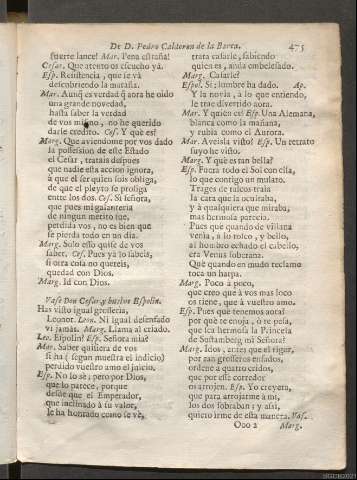 De D. Pedro Calderon de la Barca. 475
fuerte lance! Mar. Pena estraña!
Cesar. Que atento os escucho yà.
Esp. Resistencia, que se và
descubriendo la maraña.
Mar. Aunq̃ es verdad q̃ aora he oido
una grande novedad,
hasta saber la verdad
de vos mismo, no he querido
darle credito. Ces. Y què es?
Marg. Que aviendome por vos dado
la possession de este Estado
el Cesar, tratais despues
que nadie esta accion ignora,
à que el ser quien sois obliga,
de que el pleyto se prosiga
entre los dos. Ces. Si señora,
que pues mi galanteria
de ningun merito fue,
perdida vos, no es bien que
se pierda todo en un dia.
Marg. Solo esso quise de vos
saber. Ces. Pues yà lo sabeis,
si otra cosa no quereis,
quedad con Dios.
Marg. Id con Dios.
Vase Don Cesar, y buelve Espolin.
Has visto igual grosseria,
Leonor. Leon. Ni igual desenfado
vi jamàs. Marg. Llama al criado.
Leo. Espolin? Esp. Señora mia?
Mar. Saber quisiera de vos
si ha (segun muestra el indicio)
perdido vuestro amo el juicio.
Esp. No lo sè; pero por Dios,
que lo parece, porque
desde que el Emperador,
que inclinado à su valor,
le ha honrado como se vè,
trata casarle, sabiendo
quien es, anda embelesado.
Marg. Casarle?
Espol. Si; lumbre ha dado. Ap.
Y la novia, à lo que entiendo,
le trae divertido aora.
Mar. Y quien es? Esp. Una Alemana,
blanca como la mañana,
y rubia como el Aurora.
Mar. Aveisla visto? Esp. Un retrato
suyo he visto.
Marg. Y què es tan bella?
Esp. Fuera todo el Sol con ella,
lo que contigo un mulato.
Trages de raicos traìa
la cara que la ocultaba,
y à qualquiera que miraba,
mas hermosa parecia.
Pues que quando de villana
venia, à lo tosco, y bello,
al hombro echado el cabello,
era Venus soberana.
Què quando en mudo reclamo
toca un harpa.
Marg. Poco à poco,
que creo que à vos mas loco
os tiene, que à vuestro amo.
Esp. Pues què tenemos aora?
por què te enoja, ò te pesa,
que sea hermosa la Princesa
de Sustamberg mi Señora?
Marg. Idos, antes que el rigor,
por tan grosseros enfados,
ordene à quatro criados,
que por esse corredor
os arrojen. Esp. Yo creyera,
que para arrojarme à mi,
los dos sobraban; y assi,
quiero irme de esta manera. Vas.
Ooo 2 Marg.